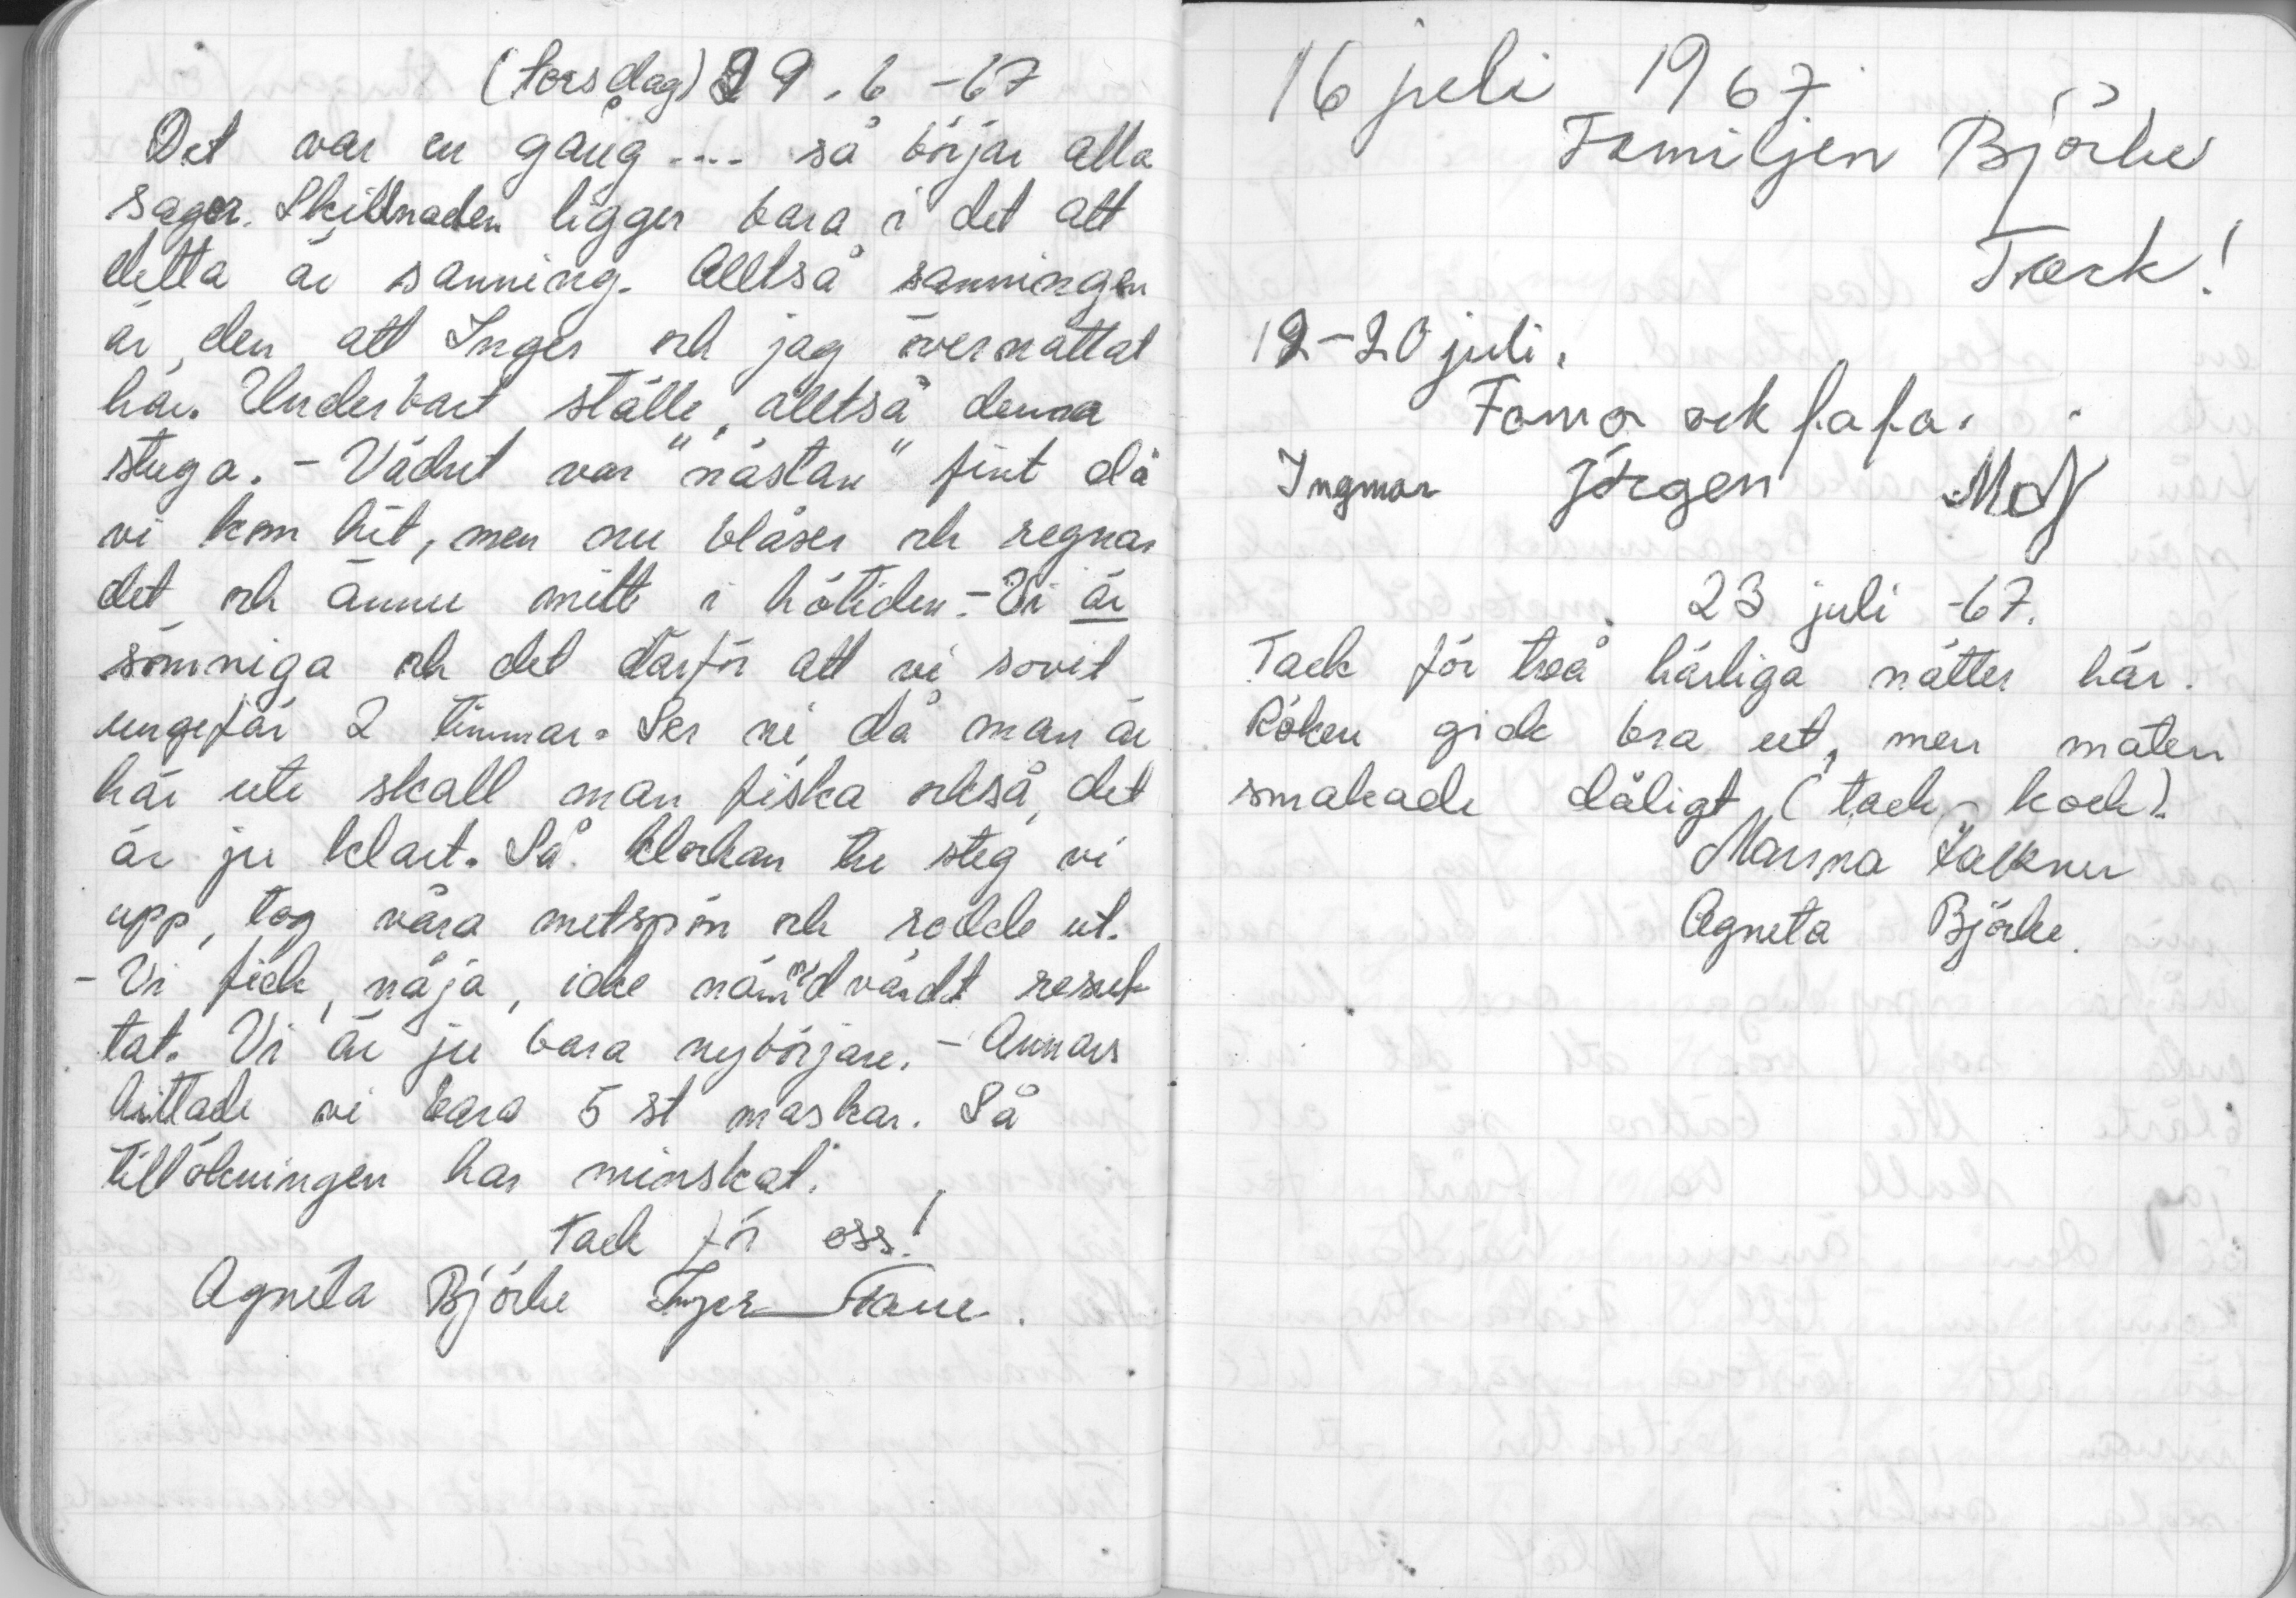 (torsdag) 29.6 -67
Det var en gång .... så börjar alla
sagor. Skillnaden ligger bara i det att
detta är sanning. Alltså sanningen
är den att Inger och jag övernattat
här. Underbart ställe, alltså denna
stuga. - Vädret var "nästan" fint då
vi kom hit, men nu blåser och regnar
det och ännu mitt i hötiden. - Vi är
sömniga och det därför att vi sovit
ungefär 2 timmar. Ser ni, då man är
här ute skall man fiska också, det
är ju klart. Så klockan tre steg vi
upp, tog våra metspön och rodde ut.
- Vi fick, nåja, icke nämndvärdt resul-
tat. Vi är ju bara nybörjare. - Annars
hittade vi bara 5 st maskar. Så
tillökningen har minskat.
Tack för oss!
Agneta Björke Inger
16 juli 1967
Familjen Björke
Tack!
12-20 juli.
Famo och fafa.
Ingmar Jörgen
23 juli -67.
Tack för två härliga nätter här.
Röken gick bra ut, men maten
smakade dåligt (tack - kock).
Marina Falkner
Agneta Björke.